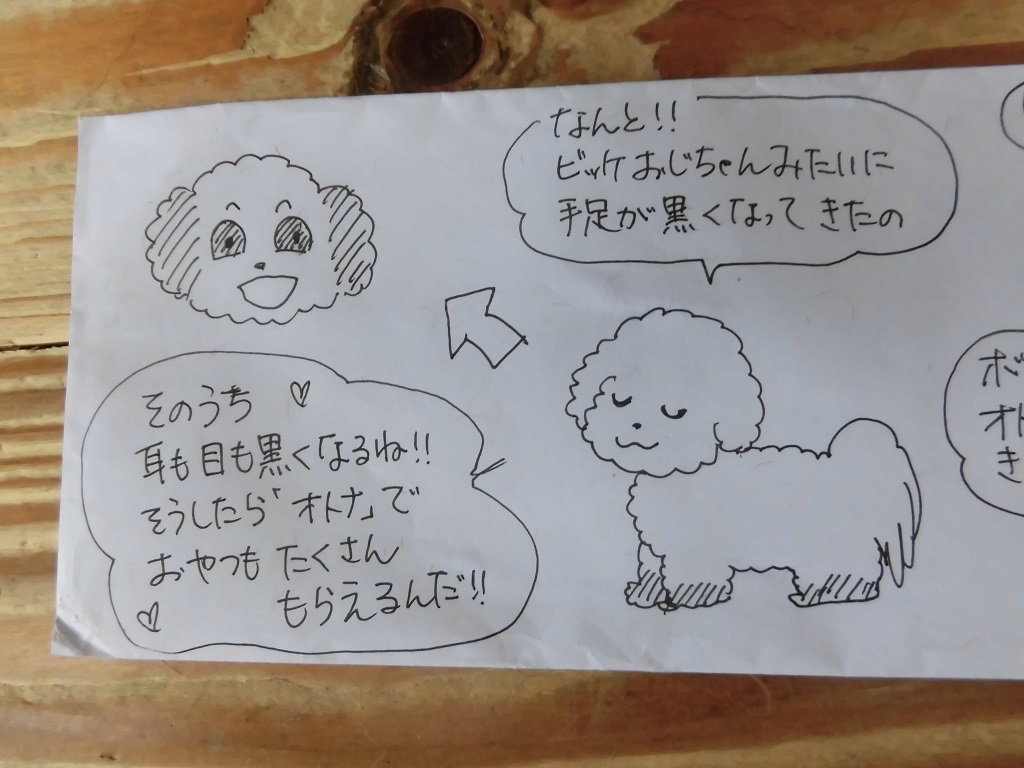 なんと!!
ビッケおじちゃんみたいに
手足が黒くなってきたの
そのうち♡
耳も目も黒くなるね!!
そうしたら「オトナ」で
おやつもたくさん
もらえるんだ!!
♡
オト
き